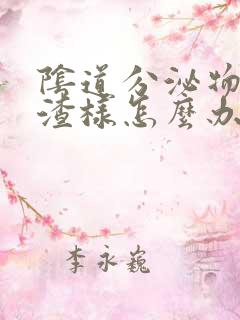 陰道分泌物
渣樣怎麼办
李永巍